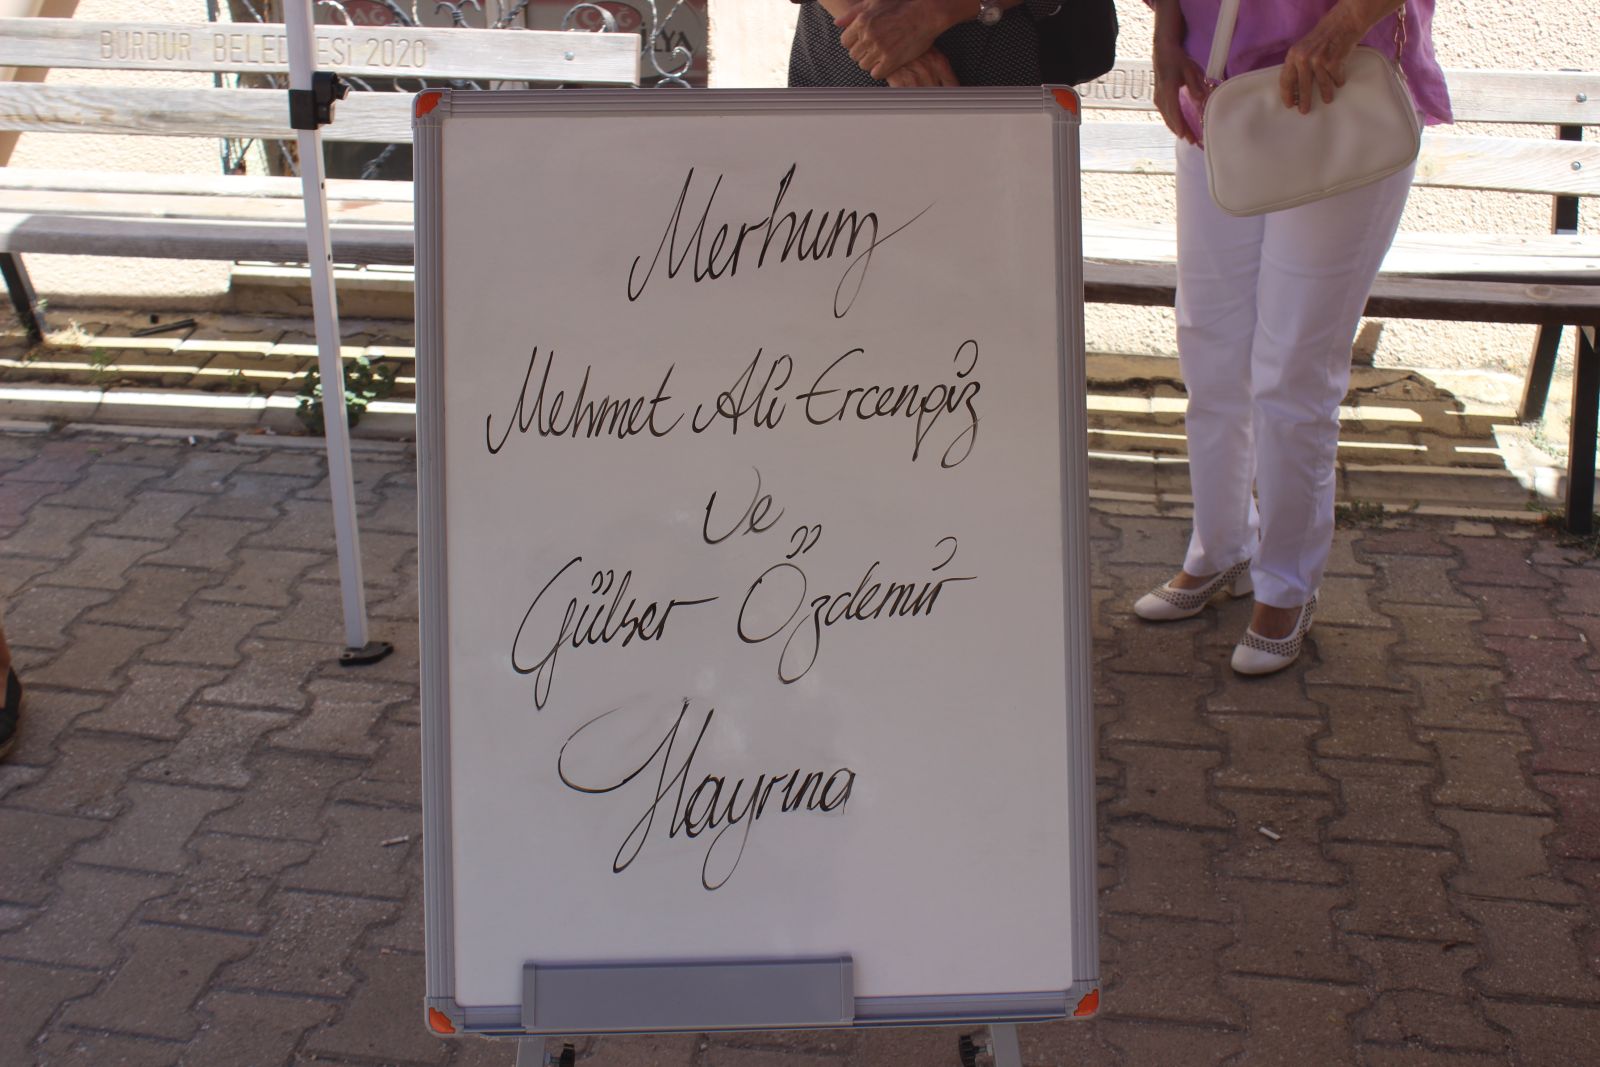 BURDUR BELEDİYESİ 2020
Merhum
Mehmet Ali Ercengiz
Ve
Gülser Özdemir
Hayrına